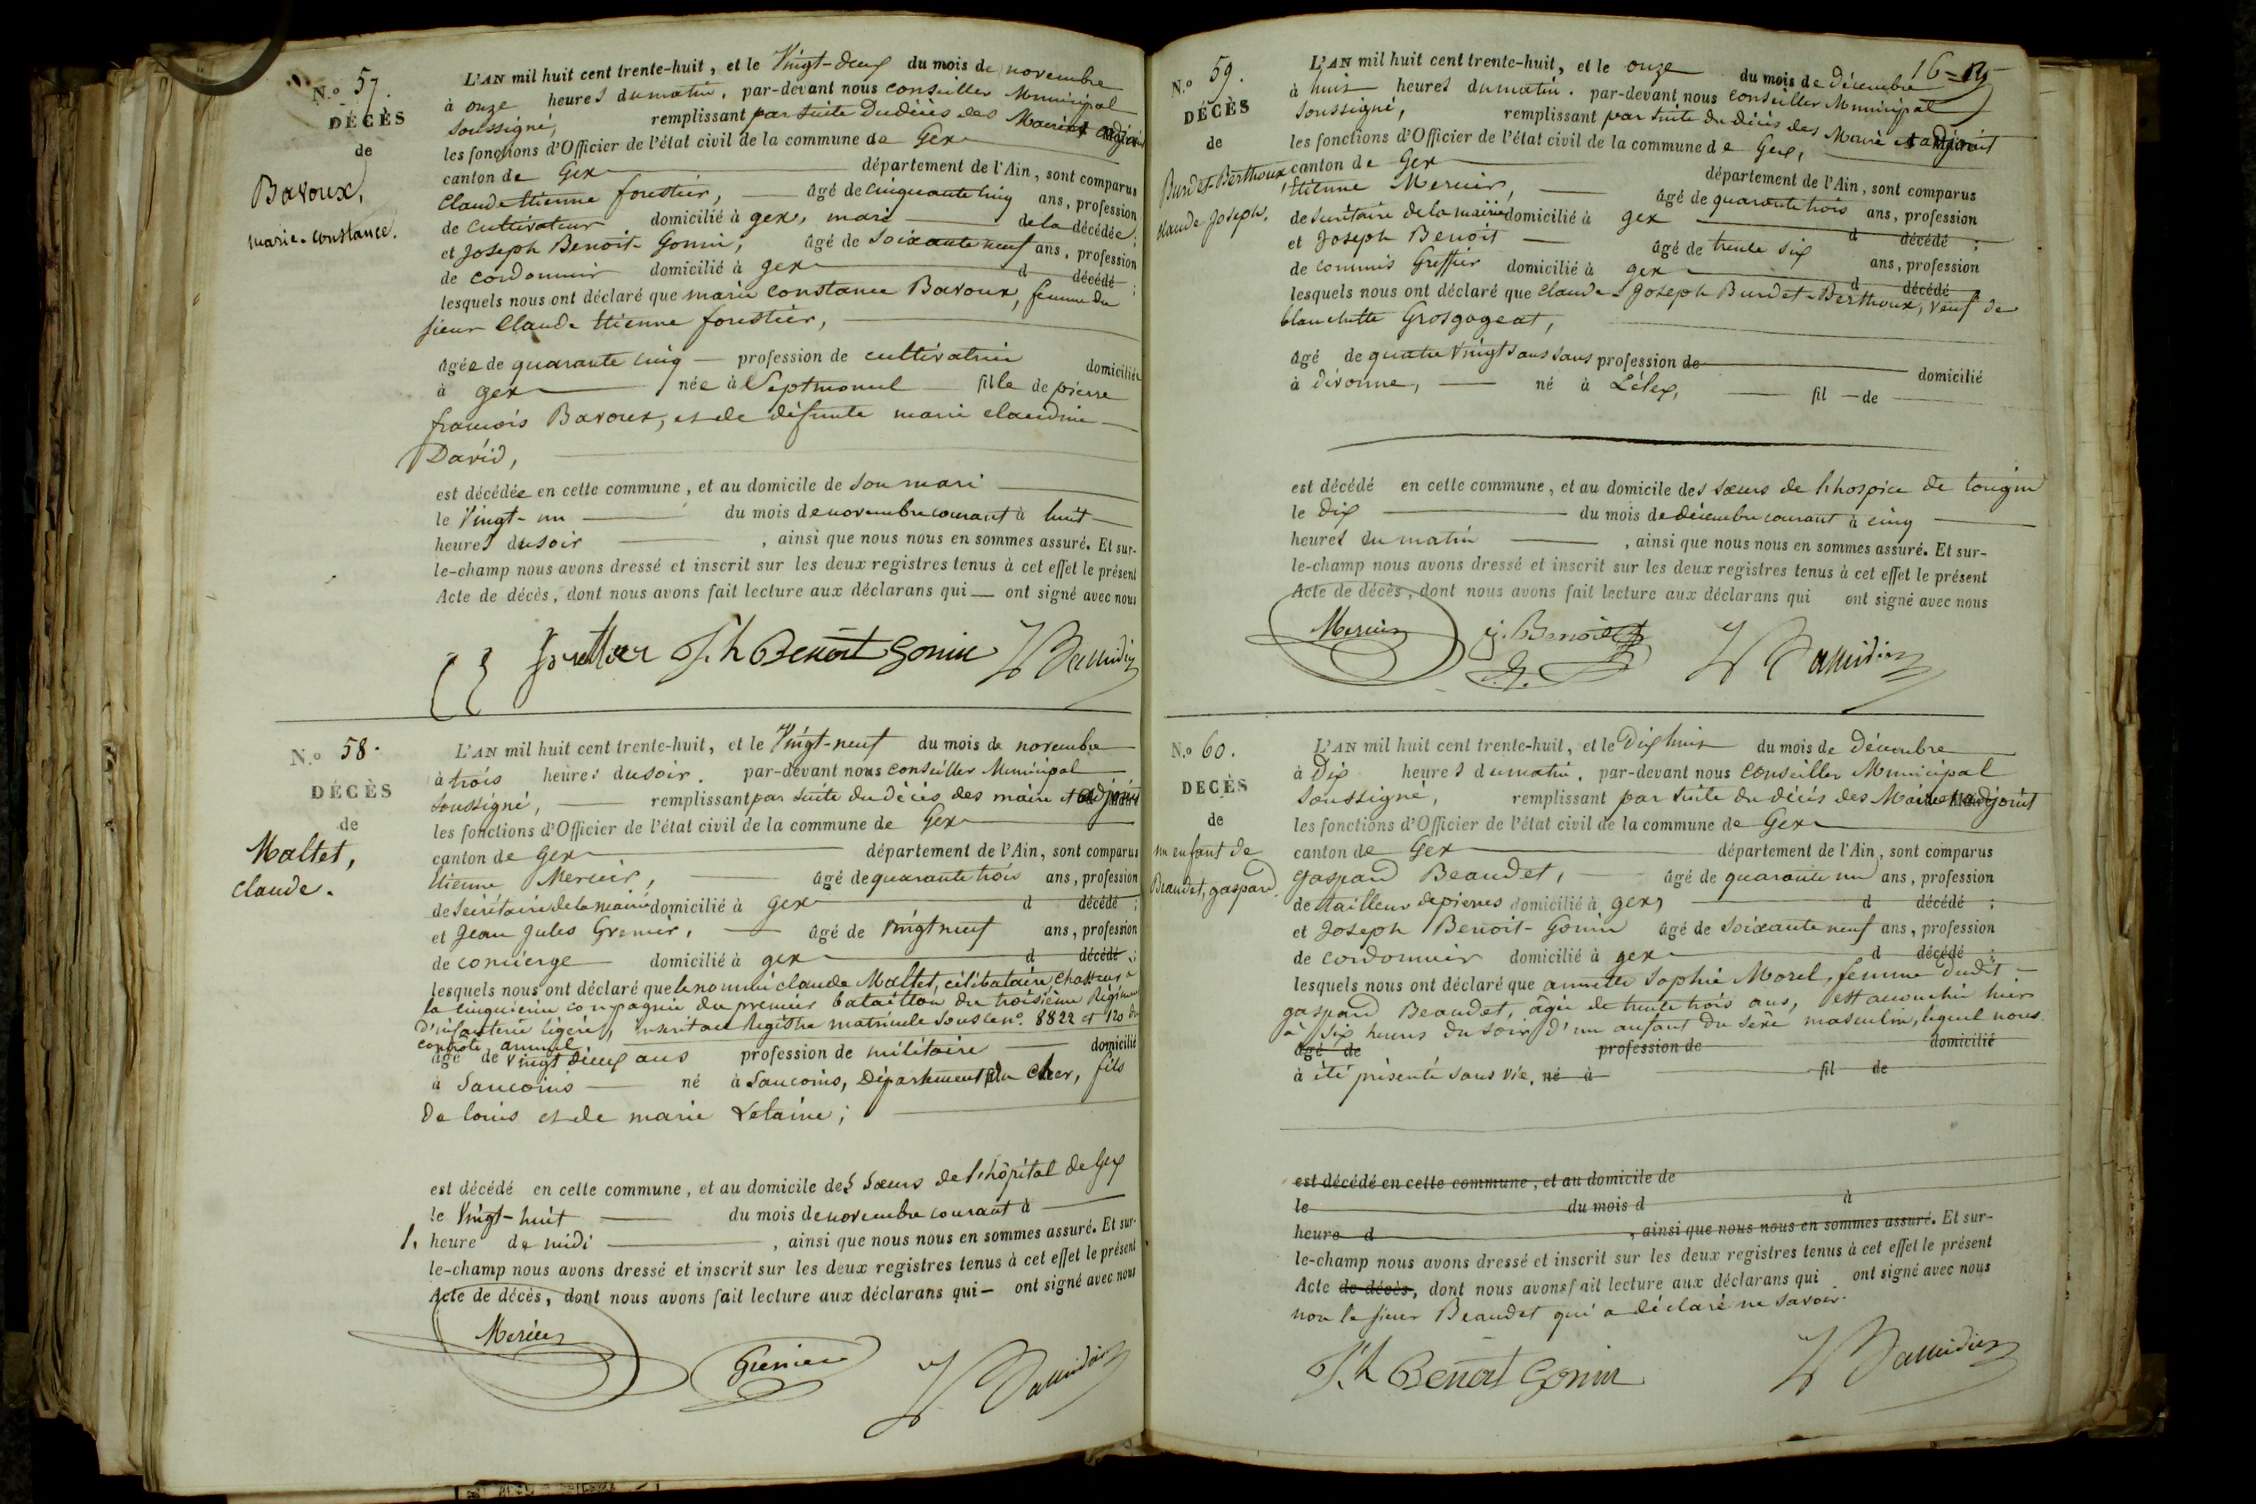 N.o 57.
DÉCÈS
de
Bavoux,
marie-constance.
L'AN mil huit cent trente-huit, et le Vingt-deux du mois de novembre
à onze heures du matin, par-devant nous conseiller Municipal
soussigné, remplissant par suite du décès des Maire et adjoint
les fonctions d'Officier de l'état civil de la commune de Gex
canton de Gex département de l'Ain, sont comparus
Claude Etienne forestier, âgé de cinquante cinq ans, profession
de cultivateur domicilié à gex, mari de la décédée;
et Joseph Benoit-Gonin, âgé de soixante neuf ans, profession
de cordonnier domicilié à gex d décédé ;
lesquels nous ont déclaré que marie constance Bavoux, femme du
sieur Claude Etienne forestier,
âgée de quarante cinq profession de cultivatrice domiciliée
à gex née à Septmoncel fille de pierre
françois Bavoux, et de défunte marie claudine
David,
est décédée en cette commune, et au domicile de son mari
le Vingt-un du mois de novembre courant à huit
heures du soir , ainsi que nous nous en sommes assuré. Et sur-
le-champ nous avons dressé et inscrit sur les deux registres tenus à cet effet le présent
Acte de décès, dont nous avons fait lecture aux déclarans qui ont signé avec nous
forettier J.h Benoit Gonin
N.o 58.
DÉCÈS
de
Maltet,
claude.
L'AN mil huit cent trente-huit, et le Vingt-neuf du mois de novembre
à trois heures du soir. par-devant nous conseiller Municipal
soussigné, remplissant par suite du décès des maire et adjoint
les fonctions d'Officier de l'état civil de la commune de Gex
canton de Gex département de l'Ain, sont comparus
Etienne Mercier, âgé de quarante trois ans, profession
de secrétaire de la mairie domicilié à gex d décédé ;
et Jean Jules Grenier, âgé de vingt neuf ans, profession
de concierge domicilié à gex d décédé ;
lesquels nous ont déclaré que le nommé claude Maltet, célibataire, chasseur à
la cinquième compagnie du premier bataillon du troisième Régiment
d'infanterie légère, inscrit au Registre matricule sous le no. 8822 et 120 du
contrôle annuel
âgé de vingt deux ans profession de militaire domicilié
à Sancoins né à Sancoins, Département du Cher, fils
de louis et de marie Lelaine;
est décédé en cette commune, et au domicile des sœurs de l'hôpital de Gex
le Vingt-huit du mois de novembre courant à
1. heure de midi , ainsi que nous nous en sommes assuré. Et sur-
le-champ nous avons dressé et inscrit sur les deux registres tenus à cet effet le présent
Acte de décès, dont nous avons fait lecture aux déclarans qui ont signé avec nous
Mercier Grenier
16
N.o 59.
DÉCÈS
de
Burdet-Berthoux,
claude Joseph.
L'AN mil huit cent trente-huit, et le onze du mois de décembre
à huit heures du matin. par-devant nous conseiller Municipal
soussigné, remplissant par suite du décès des Maire et adjoint
les fonctions d'Officier de l'état civil de la commune de Gex,
canton de Gex département de l'Ain, sont comparus
Etienne Mercier, âgé de quarante trois ans, profession
de secrétaire de la mairie domicilié à gex d décédé ;
et Joseph Benoit âgé de trente six ans, profession
de commis Greffier domicilié à gex d décédé
lesquels nous ont déclaré que Claude Joseph Burdet-Berthoux, veuf de
blanchette Grosgogeat,
âgé de quatre vingts ans sans profession de domicilié
à divonne, né à Lélex, fil de
est décédé en cette commune, et au domicile des sœurs de l'hospice de tougin
le dix du mois de décembre courant à cinq
heures du matin , ainsi que nous nous en sommes assuré. Et sur-
le-champ nous avons dressé et inscrit sur les deux registres tenus à cet effet le présent
Acte de décès, dont nous avons fait lecture aux déclarans qui ont signé avec nous
Mercier j. Benoit
N.o 60.
DÉCÈS
de
un enfant de
Beaudet, gaspard.
L'AN mil huit cent trente-huit, et le Dix huit du mois de Décembre
à Dix heures du matin, par-devant nous conseiller Municipal
soussigné, remplissant par suite du décès des Maire et adjoint
les fonctions d'Officier de l'état civil de la commune de Gex
canton de Gex département de l'Ain, sont comparus
gaspard Beaudet, âgé de quarante un ans, profession
de tailleur de pierres domicilié à gex, d décédé ;
et Joseph Benoit-Gonin âgé de soixante neuf ans, profession
de cordonnier domicilié à gex d décédé ;
lesquels nous ont déclaré que annette Sophie Morel, femme dudit
gaspard Beaudet, âgée de trente trois ans, est accouchée hier
à six heures du soir d'un enfant du sexe masculin, lequel nous
âgé de profession de domicilié
à été présenté sans vie. né à fil de
est décédé en cette commune, et au domicile de
le du mois d à
heure d , ainsi que nous nous en sommes assuré. Et sur-
le-champ nous avons dressé et inscrit sur les deux registres tenus à cet effet le présent
Acte de décès, dont nous avons fait lecture aux déclarans qui ont signé avec nous
non le sieur Beaudet qui a déclaré ne savoir.
J.h Benoit Gonin